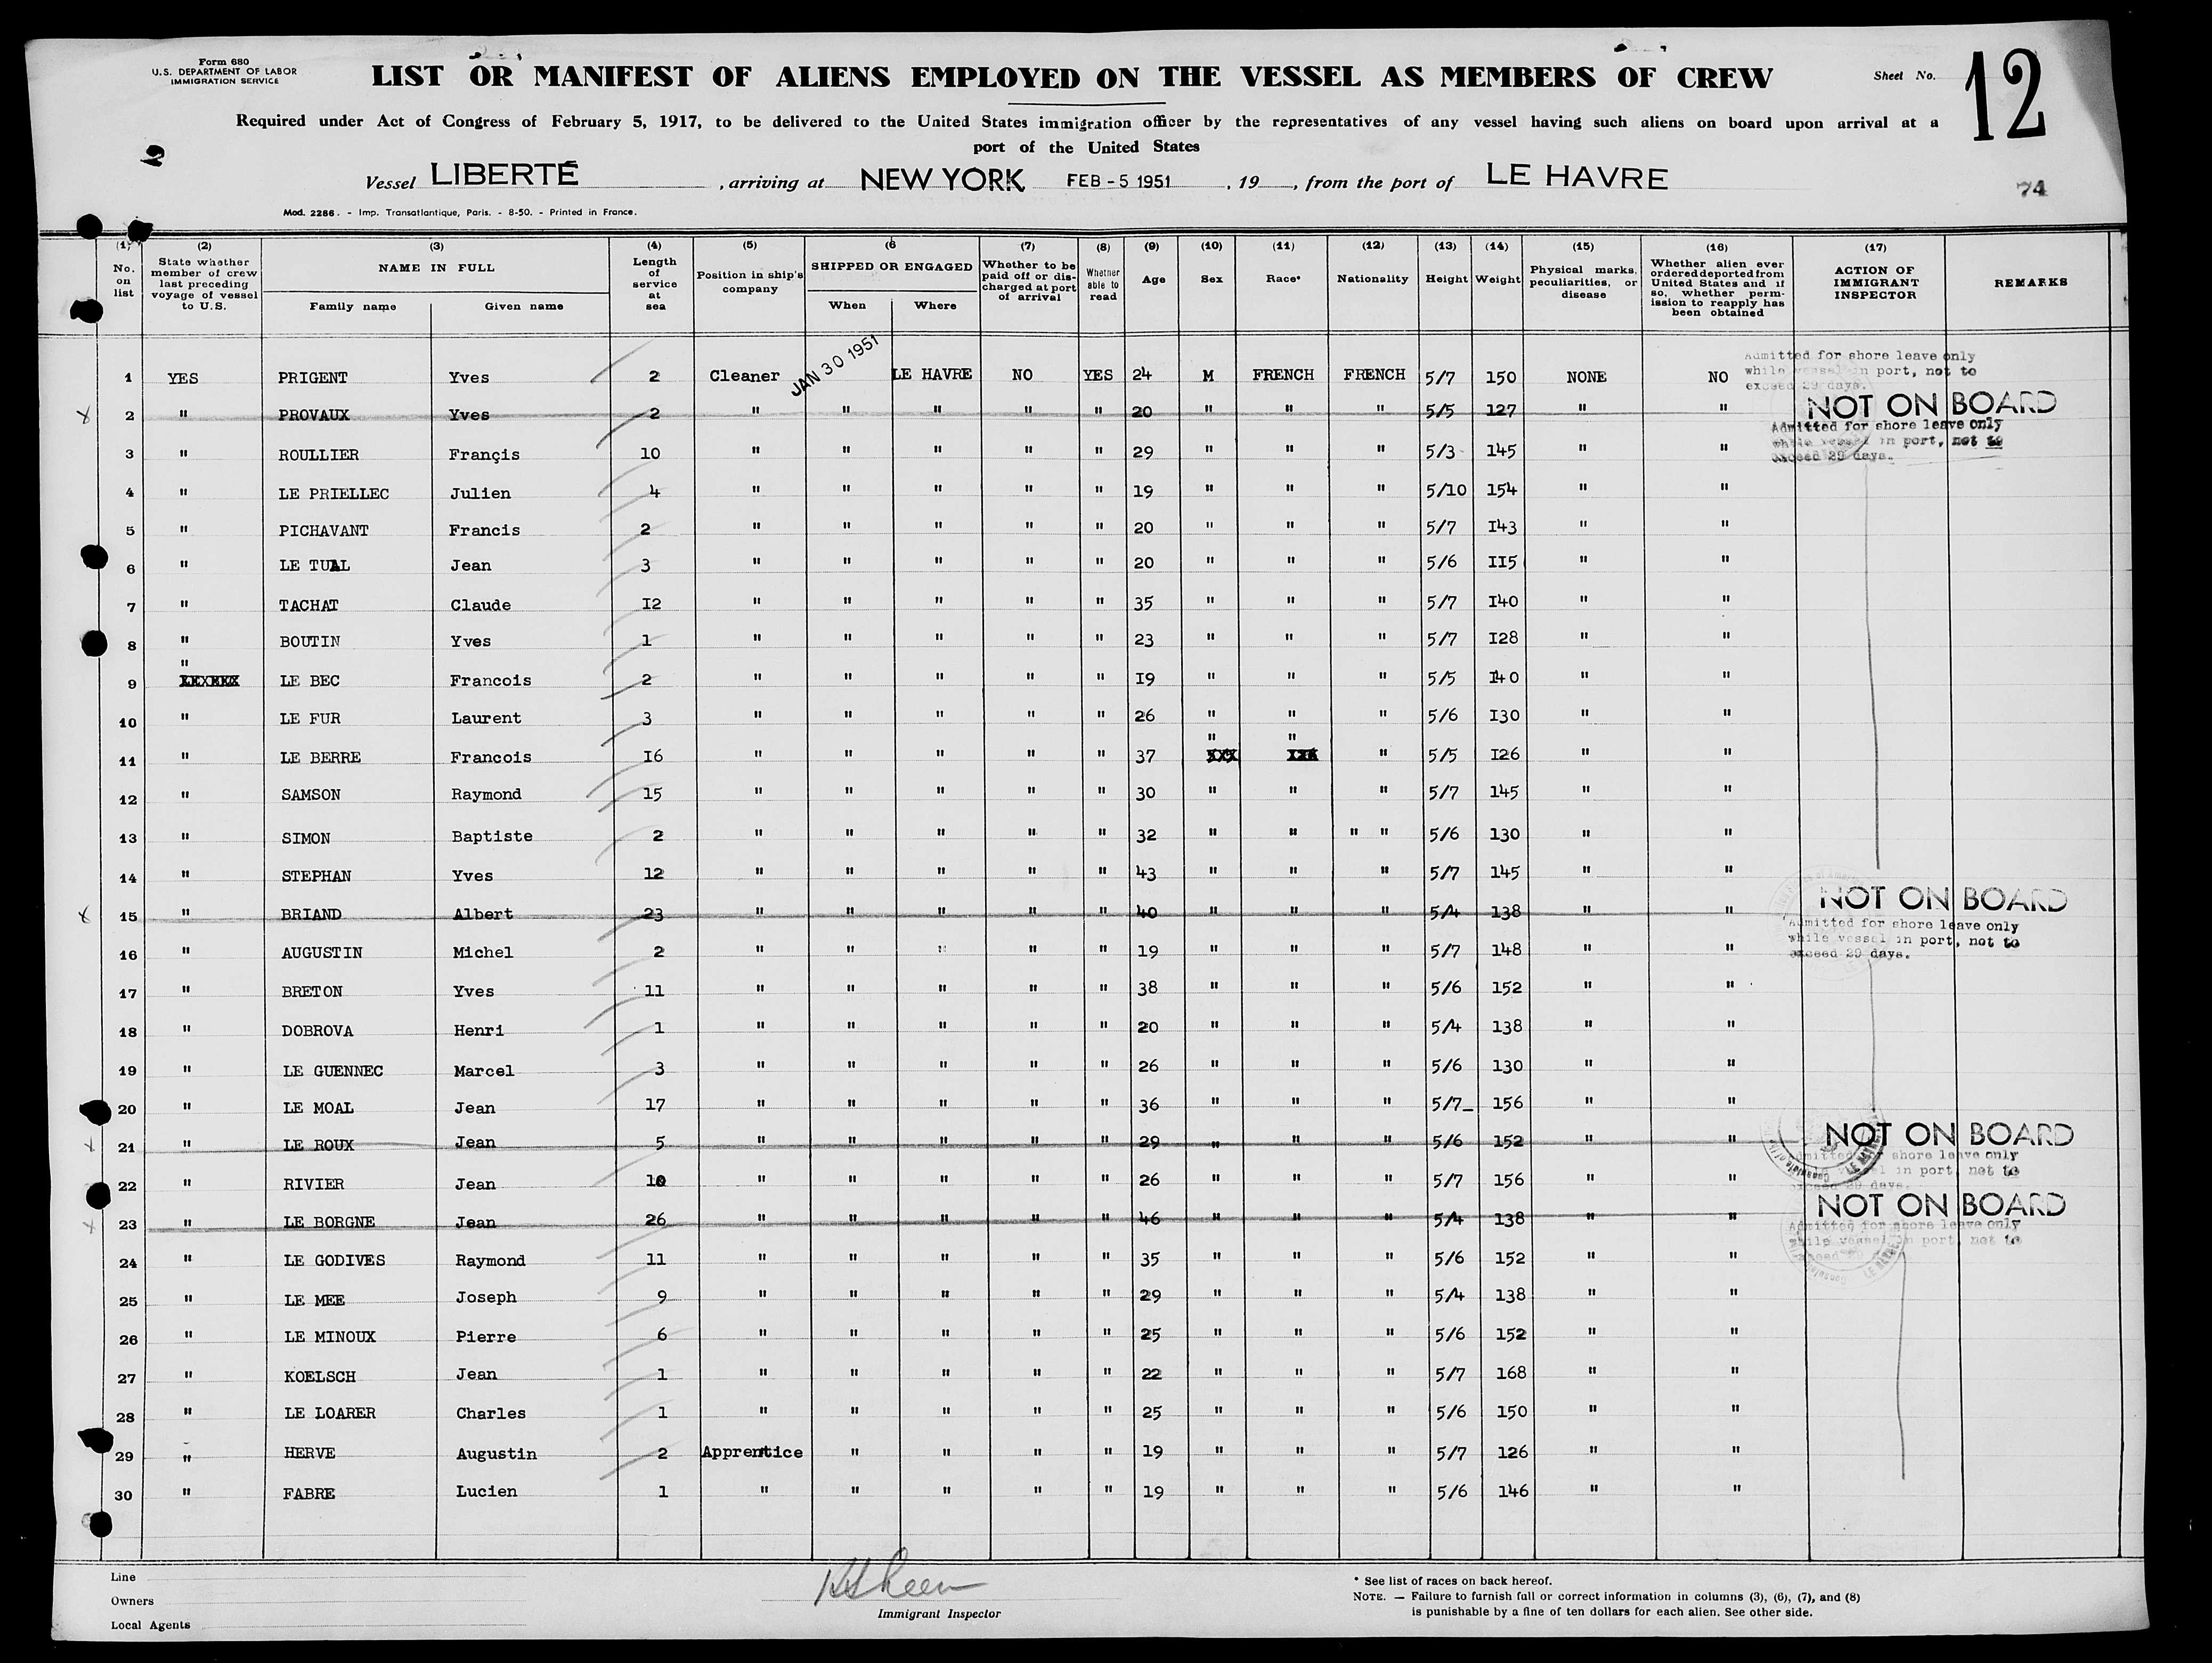 Form 680
U.S. DEPARTMENT OF LABOR
IMMIGRATION SERVICE
LIST OR MANIFEST OF ALIENS EMPLOYED ON THE VESSEL AS MEMBERS OF CREW
Sheet No. 12
Required under Act of Congress of February 5, 1917, to be delivered to the United States immigration officer by the representatives of any vessel having such aliens on board upon arrival at a
port of the United States
Vessel LIBERTÉ , arriving at NEW YORK FEB - 5 1951 , 19 , from the port of LE HAVRE
74
Mod. 2286. - Imp. Transatlantique, Paris. - 8-50. - Printed in France.
(1) No. on list
(2) State whether member of crew last preceding voyage of vessel to U.S.
(3) NAME IN FULL Family name Given name
(4) Length of service at sea
(5) Position in ship's company
(6 SHIPPED OR ENGAGED When Where
(7) Whether to be paid off or discharged at port of arrival
(8) Whether able to read
(9) Age
(10) Sex
(11) Race*
(12) Nationality
(13) Height
(14) Weight
(15) Physical marks, peculiarities, or disease
(16) Whether alien ever ordered deported from United States and if so, whether permission to reapply has been obtained
(17) ACTION OF IMMIGRANT INSPECTOR
REMARKS
1 YES PRIGENT Yves 2 Cleaner JAN 30 1951 LE HAVRE NO YES 24 M FRENCH FRENCH 5/7 150 NONE NO Admitted for shore leave only while vessel in port, not to exceed 29 days.
2 " PROVAUX Yves 2 " " " " " 20 " " " 5/5 127 " " NOT ON BOARD
3 " ROULLIER Françis 10 " " " " " 29 " " " 5/3 145 " " Admitted for shore leave only while vessel in port, not to exceed 29 days.
4 " LE PRIELLEC Julien 4 " " " " " 19 " " " 5/10 154 " "
5 " PICHAVANT Francis 2 " " " " " 20 " " " 5/7 I43 " "
6 " LE TUAL Jean 3 " " " " " 20 " " " 5/6 II5 " "
7 " TACHAT Claude I2 " " " " " 35 " " " 5/7 I40 " "
8 " BOUTIN Yves 1 " " " " " 23 " " " 5/7 I28 " "
9 " LE BEC Francois 2 " " " " " I9 " " " 5/5 I40 " "
10 " LE FUR Laurent 3 " " " " " 26 " " " 5/6 I30 " "
11 " LE BERRE Francois I6 " " " " " 37 " " " 5/5 I26 " "
12 " SAMSON Raymond 15 " " " " " 30 " " " 5/7 145 " "
13 " SIMON Baptiste 2 " " " " " 32 " " " " 5/6 130 " "
14 " STEPHAN Yves 12 " " " " " 43 " " " 5/7 145 " "
15 " BRIAND Albert 23 " " " " " 40 " " " 5/4 138 " " NOT ON BOARD
16 " AUGUSTIN Michel 2 " " " " " 19 " " " 5/7 148 " " Admitted for shore leave only while vessel in port, not to exceed 29 days.
17 " BRETON Yves 11 " " " " " 38 " " " 5/6 152 " "
18 " DOBROVA Henri 1 " " " " " 20 " " " 5/4 138 " "
19 " LE GUENNEC Marcel 3 " " " " " 26 " " " 5/6 130 " "
20 " LE MOAL Jean 17 " " " " " 36 " " " 5/7_ 156 " "
21 " LE ROUX Jean 5 " " " " " 29 " " " 5/6 152 " " NOT ON BOARD
22 " RIVIER Jean 10 " " " " " 26 " " " 5/7 156 " " shore leave only in port, not to
23 " LE BORGNE Jean 26 " " " " " 46 " " " 5/4 138 " " NOT ON BOARD
24 " LE GODIVES Raymond 11 " " " " " 35 " " " 5/6 152 " " Admitted for shore leave only while vessel in port, not to
25 " LE MEE Joseph 9 " " " " " 29 " " " 5/4 138 " "
26 " LE MINOUX Pierre 6 " " " " " 25 " " " 5/6 152 " "
27 " KOELSCH Jean 1 " " " " " 22 " " " 5/7 168 " "
28 " LE LOARER Charles 1 " " " " " 25 " " " 5/6 150 " "
29 " HERVE Augustin 2 Apprentice " " " " 19 " " " 5/7 126 " "
30 " FABRE Lucien 1 " " " " " 19 " " " 5/6 146 " "
Line
Owners
Local Agents
Immigrant Inspector
* See list of races on back hereof.
NOTE. — Failure to furnish full or correct information in columns (3), (6), (7), and (8)
is punishable by a fine of ten dollars for each alien. See other side.